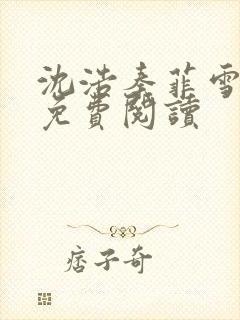 沈浩秦菲雪
免費閱讀
痞子奇